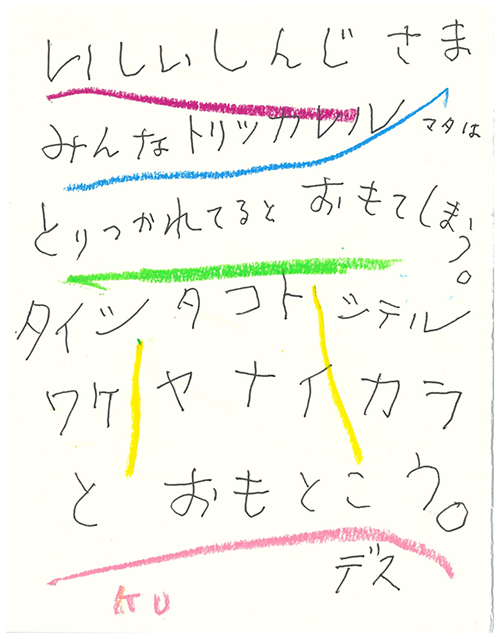 いしいしんじさま
みんなトリツカレル マタは
とりつかれてるとおもてしまう。
タイシタコトシテル
ワケヤナイカラ
とおもとこう。
デス
KU